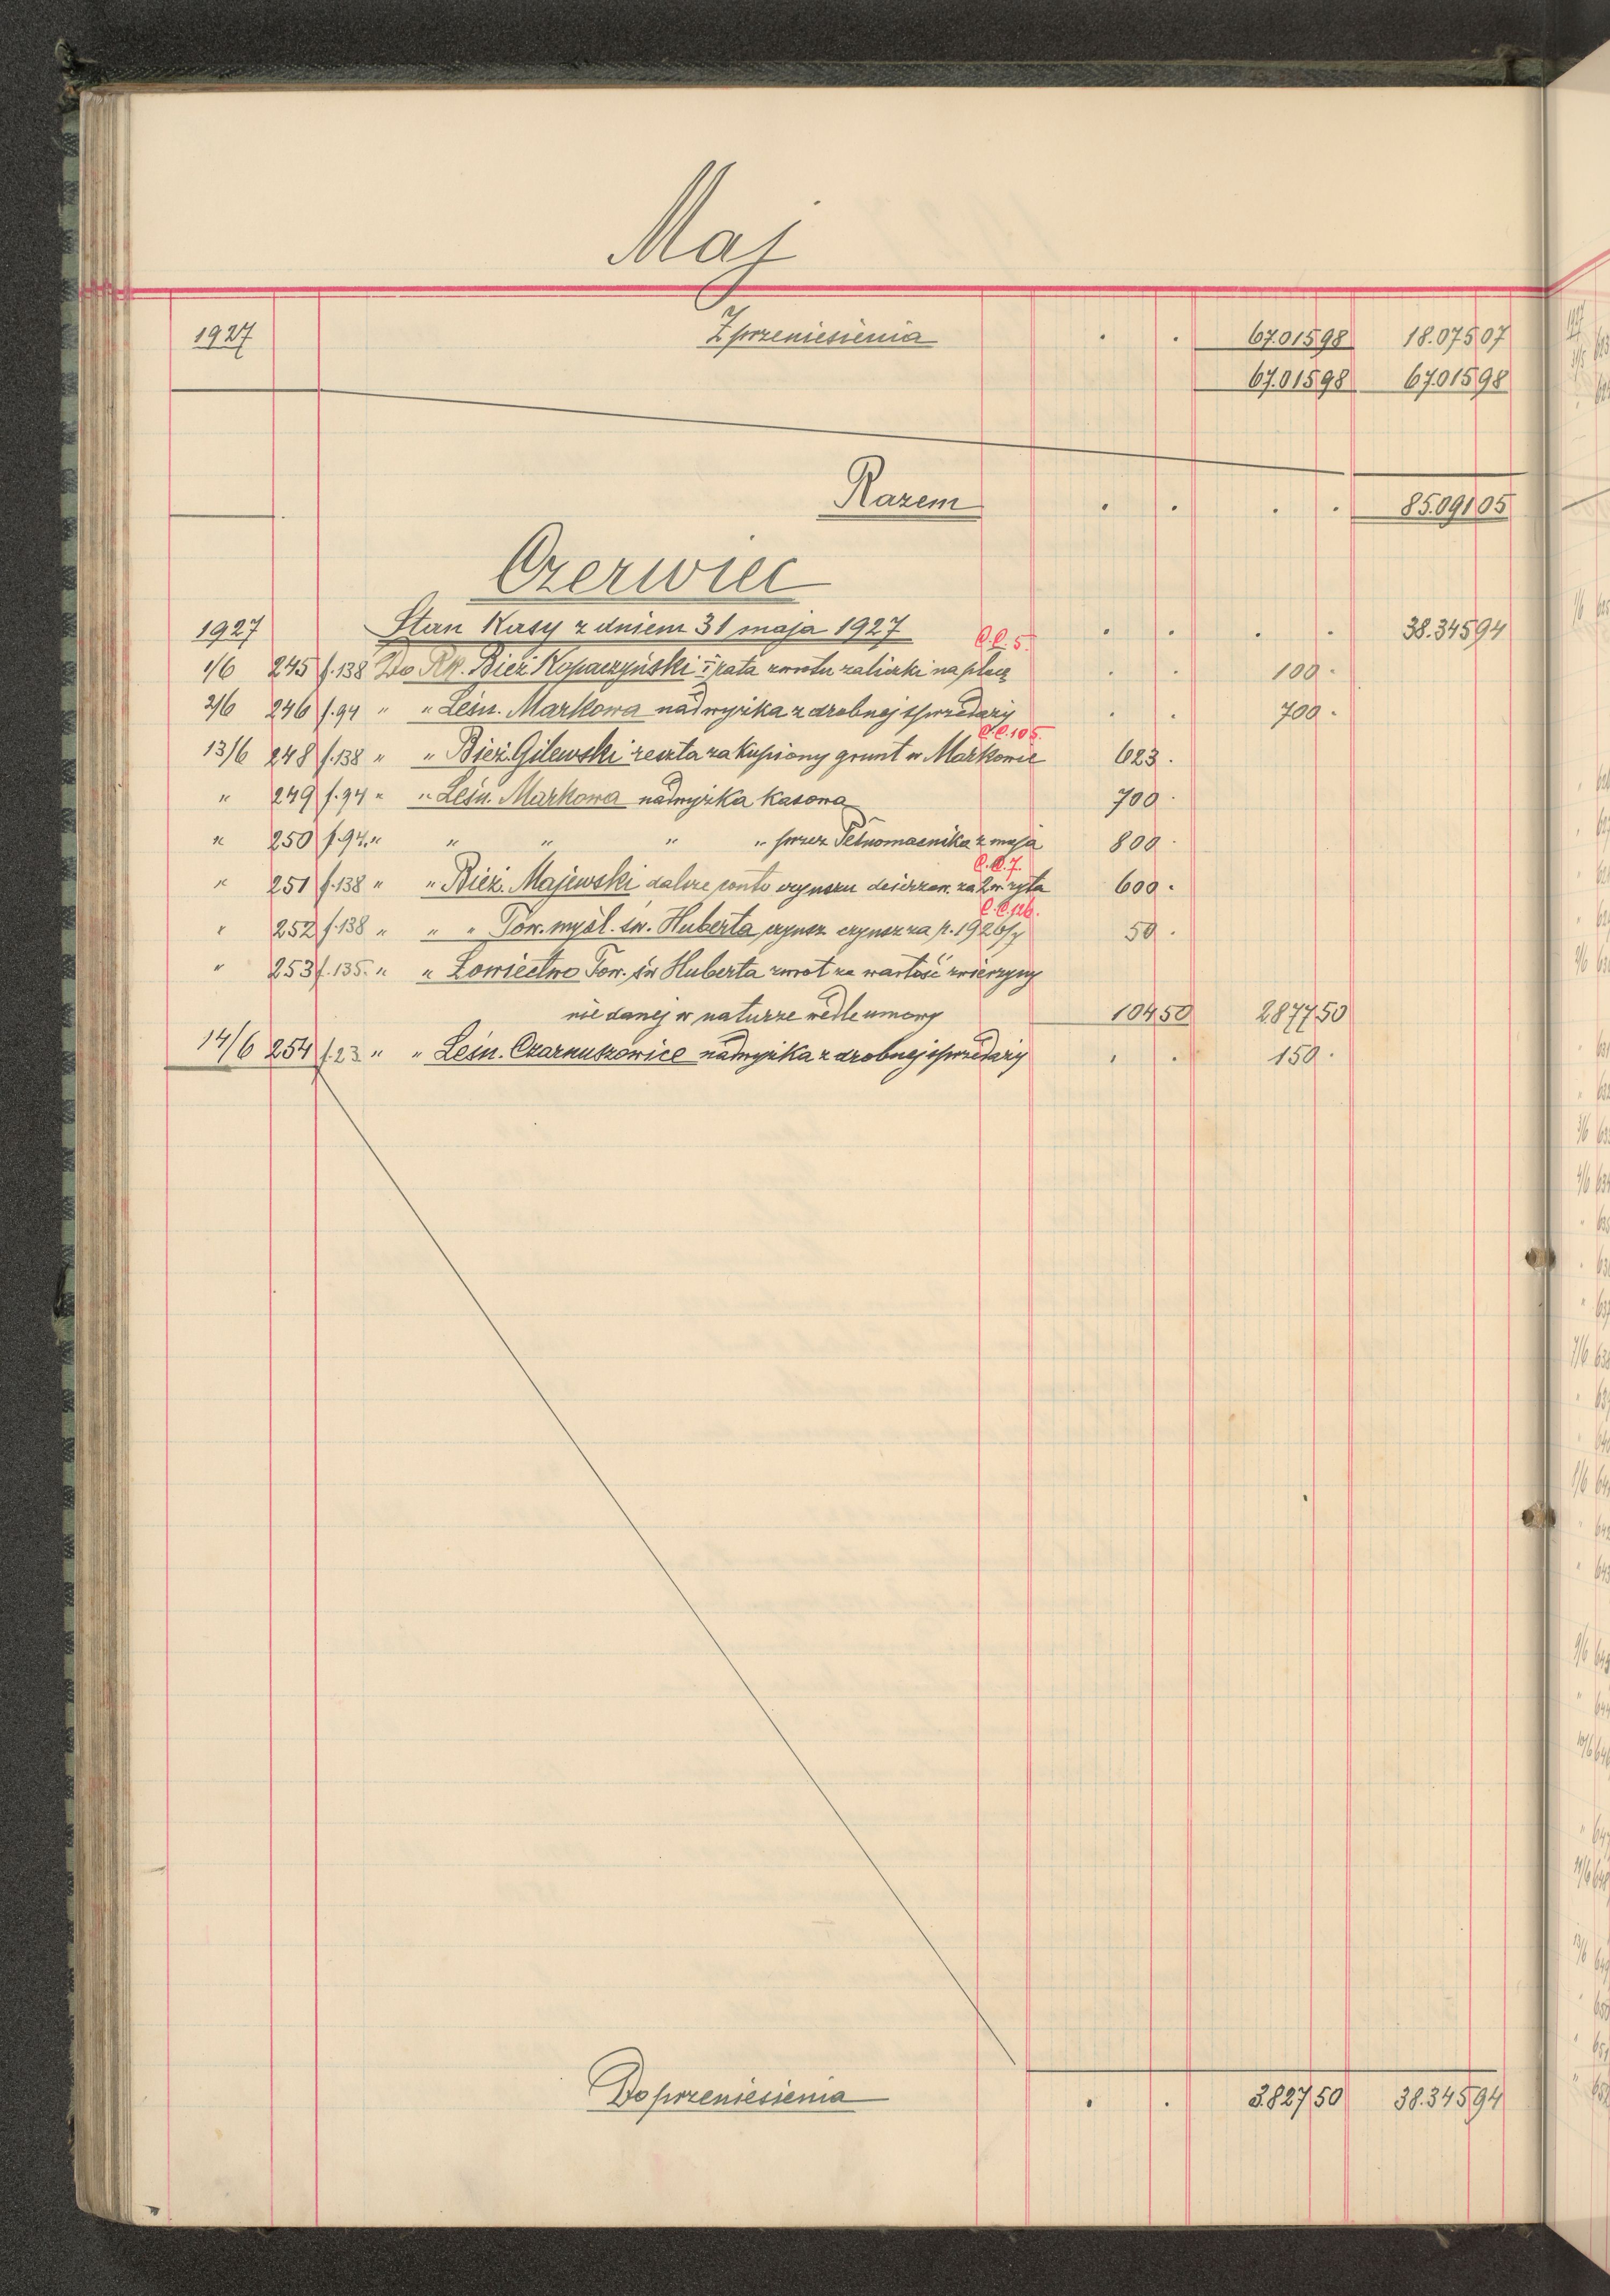 Maj
1927 Z przeniesienia . . 67.015 98 18.075 07
67.015 98 67.015 98
Razem . . . . 85.091 05
Czerwiec
1927 Stan Kasy z dniem 31 maja 1927 . . . . 38.345 94
C.C. 5.
1/6 245 f.138 Do Rk. Bież Kopaczyński I rata zwrotu zaliczki na płacę . . 100 .
2/6 246 f.94 " " Leśn. Markowa nadwyżka z drobnej sprzedaży . . 700 .
C.C. 105.
13/6 248 f.138 " " Bież. Gilewski reszta za kupiony grunt w Markowie 623 .
" 249 f.94 " " Leśn. Markowa nadwyżka kasowa 700 .
" 250 f.94. " " " " " przez Pełnomocnika z maja 800 .
C.C. 7.
" 251 f.138 " " Bież. Majewski dalsze conto czynszu dzierżaw. za żyta 600 .
C.C. 126.
" 252 f.138 " " " Tow. myśl. św. Huberta czynsz czynsz za r. 1926/7 50 .
" 253 f.135. " " Łowiectwo Tow. św Huberta zwrot za wartość zwierzyny
nie danej w naturze wedle umowy 104 50 2.877 50
14/6 254 f.23 " " Leśn. Czarnuszowice nadwyżka z drobnej sprzedaży . . 150 .
Do przeniesienia . . 3.827 50 38.345 94